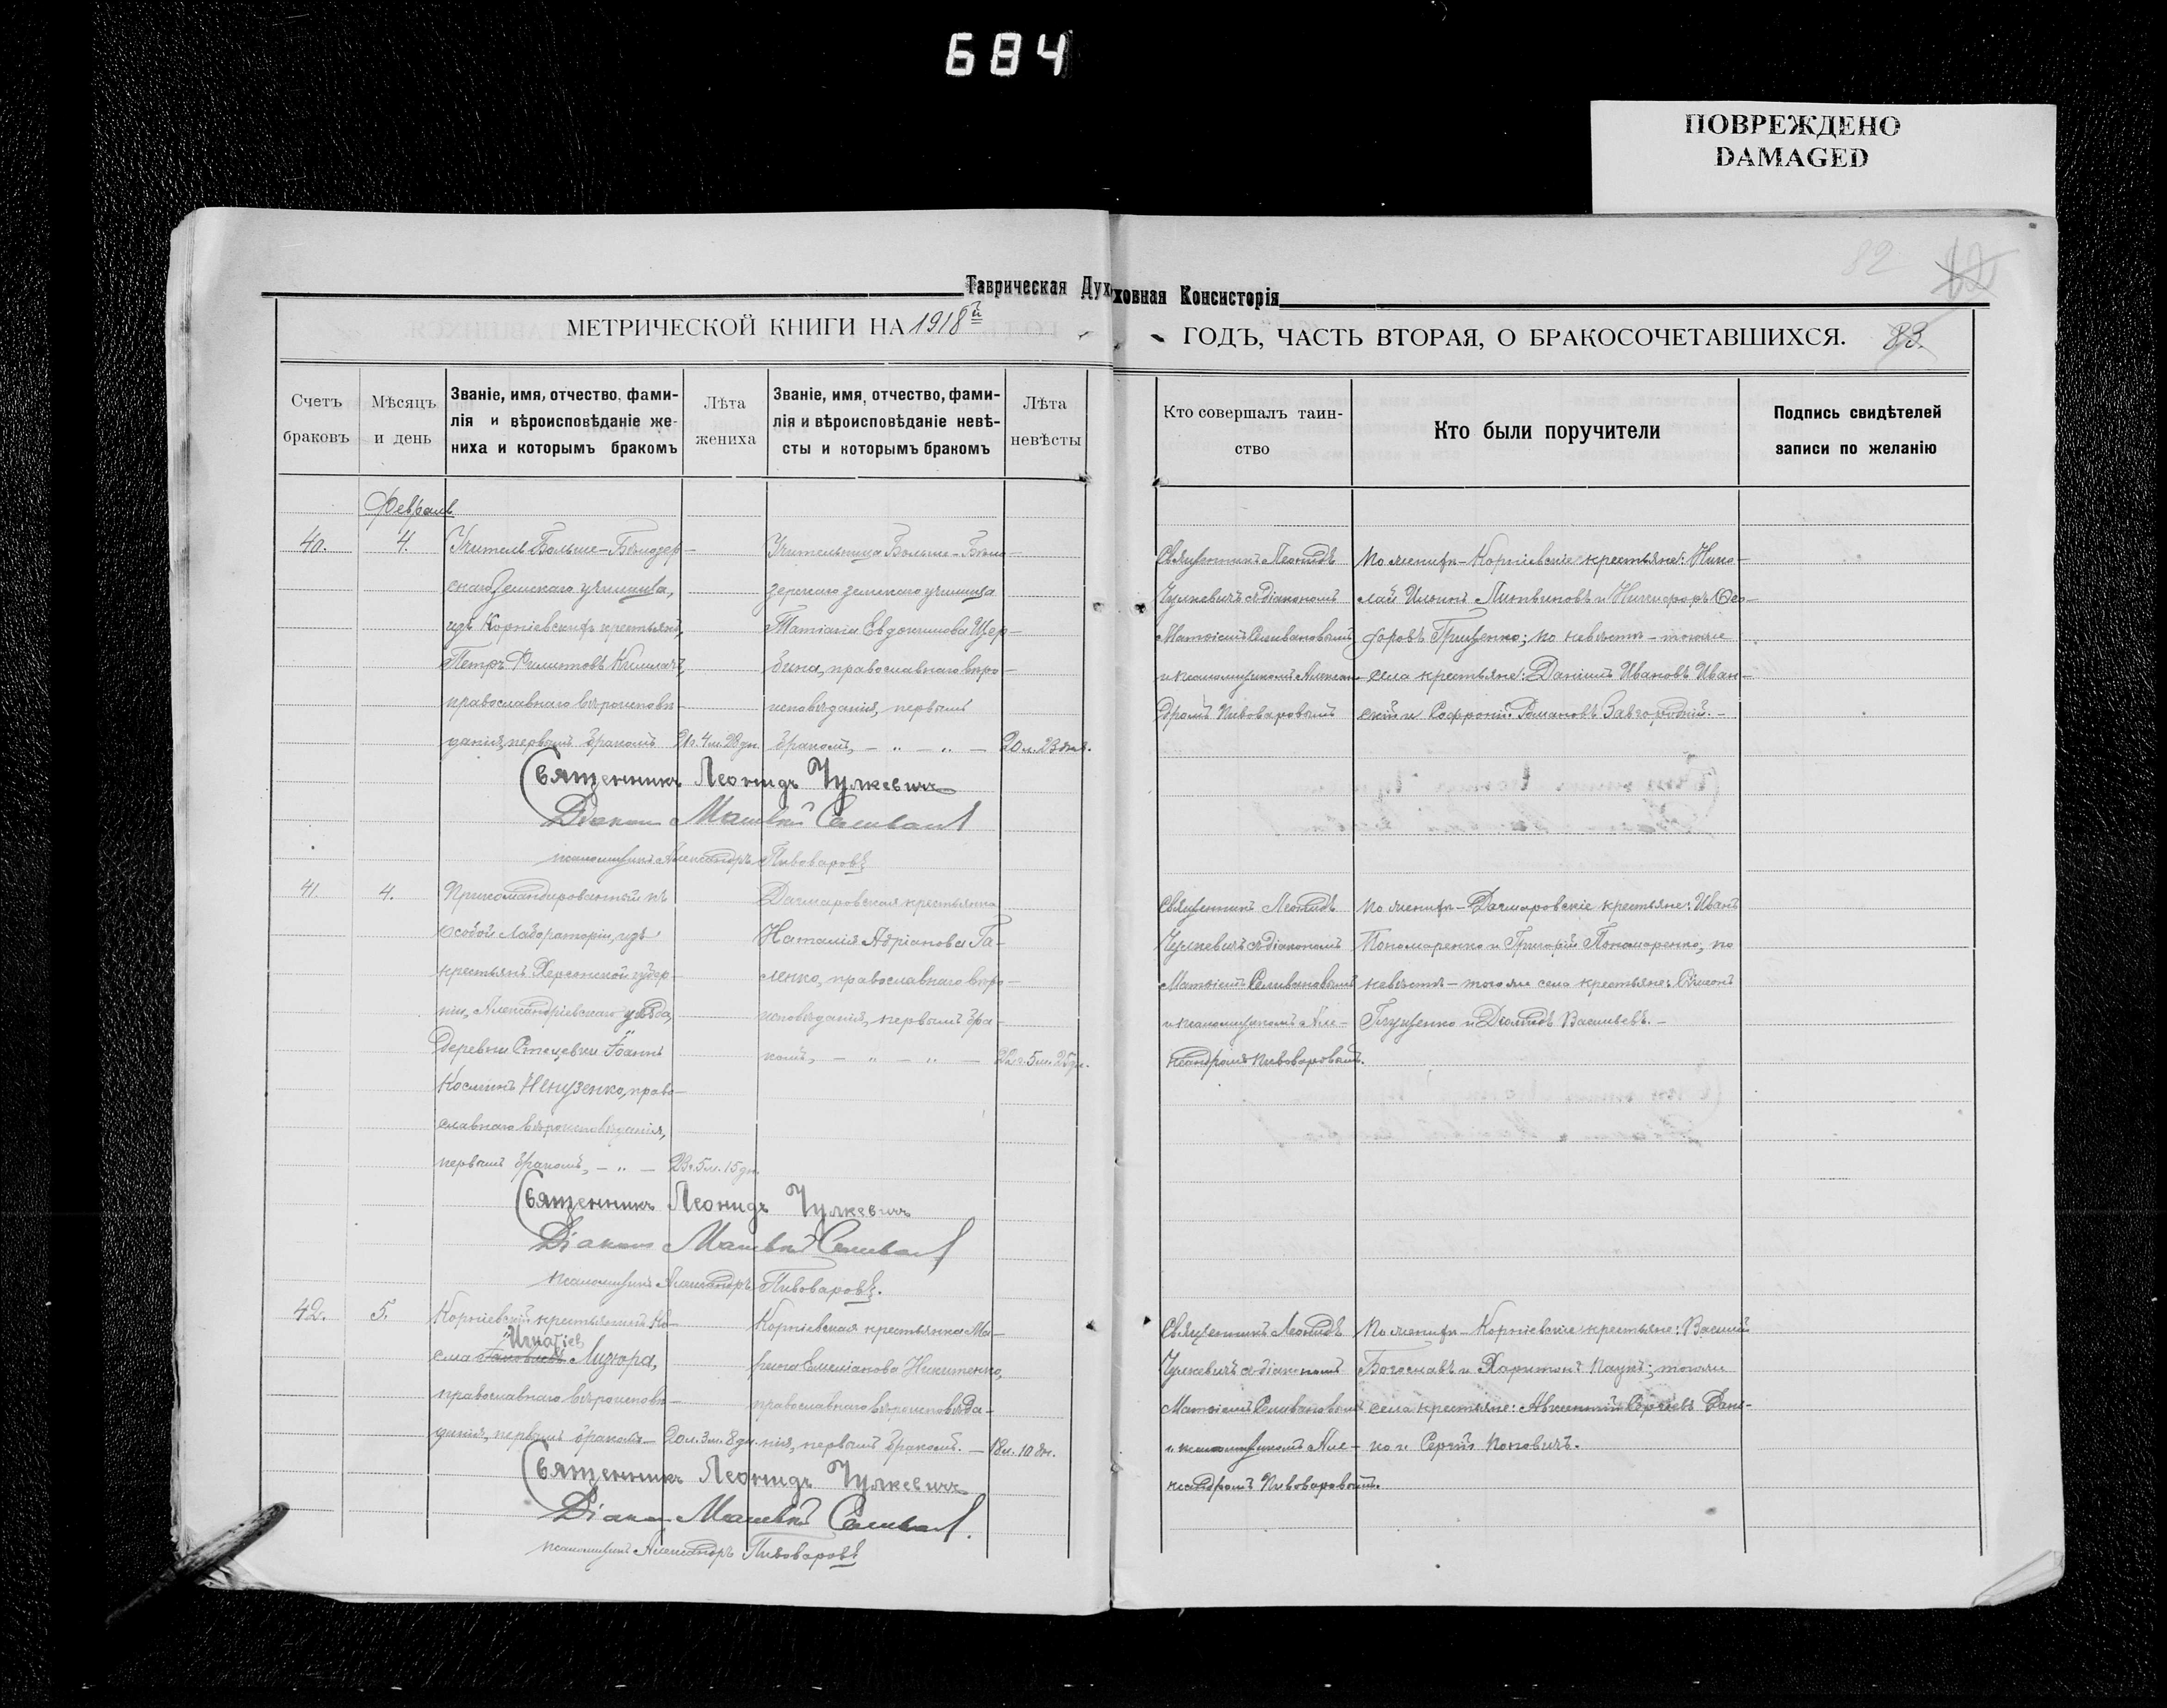 684
ПОВРЕЖДЕНО
DAMAGED
82
Таврическая Духовная Консисторія
МЕТРИЧЕСКОЙ КНИГИ НА 1918й ГОДЪ, ЧАСТЬ ВТОРАЯ, О БРАКОСОЧЕТАВШИХСЯ. 83.
Счетъ браковъ
Мѣсяцъ и день
Званіе, имя, отчество, фами-
лія и вѣроисповѣданіе же-
ниха и которымъ бракомъ
Лѣта жениха
Званіе, имя, отчество, фами-
лія и вѣроисповѣданіе невѣ-
сты и которымъ бракомъ
Лѣта невѣсты
Кто совершалъ таин-
ство
Кто были поручители
Подпись свидѣтелей
записи по желанію
Февраль
40.
4.
Учитель Больше-Бѣлозер-
скаго Земскаго училища,
изъ Корніевскихъ крестьянъ,
Петръ Филиповъ
православнаго вѣроисповѣ-
данія, первымъ бракомъ
21г. 4м. 28дн.
Учительница Больше-Бѣло-
зерскаго земскаго училища
Татіана Евдокимова Щер-
бина, православнаго вѣро-
исповѣданія, первымъ
бракомъ, – „ – „ –
20л. 23дня.
Священникъ Леонидъ
Чулкевичъ съ діакономъ
Матвіемъ Селивановымъ
и псаломщикомъ Алексан-
дромъ Пивоваровымъ
По женихѣ – Корніевскіе крестьяне: Нико-
лай Ильинъ Литвиновъ и Никифоръ Фео-
доровъ Грищенко; по невѣстѣ – того же
села крестьяне: Даніилъ Ивановъ Иван-
скій и Софроній Романовъ Завгородній. –
Священникъ Леонидъ Чулкевичъ
Діаконъ Матвѣй Селиванов
псаломщикъ Александръ Пивоваровъ
41.
4.
Прикомандированный къ
особой Лабораторіи, изъ
крестьянъ Херсонской губер-
ніи, Александріевскаго уѣзда,
деревни Іоаннъ
Косминъ Ненузенко, право-
славнаго вѣроисповѣданія,
первымъ бракомъ, – „ –
23г. 5м. 15дн.
Дагмаровская крестьянка
Наталія Адріанова Га-
ленко, православнаго вѣро-
исповѣданія, первымъ бра-
комъ, – „ – „ –
22г. 5м. 25дн.
Священникъ Леонидъ
Чулкевичъ съ діакономъ
Матвіемъ Селивановымъ
и псаломщикомъ Але-
ксандромъ Пивоваровымъ.
По женихѣ – Дагмаровскіе крестьяне: Иванъ
Пономаренко и Григорій Пономаренко, по
невѣстѣ – того же села крестьяне: Симеонъ
Глущенко и Діомидъ Васильевъ. –
Священникъ Леонидъ Чулкевичъ
Діаконъ Матвѣй Селиванов
псаломщикъ Александръ Пивоваровъ.
42.
5.
Корніевскій крестьянинъ Ко-
Игнатіев
сма Яковлевъ Лизюра,
православнаго вѣроисповѣ-
данія, первымъ бракомъ –
20л. 3м. 8дн.
Корніевская крестьянка Ма-
рина Емеліанова Никитенко,
православнаго вѣроисповѣда-
нія, первымъ бракомъ. –
18л. 10дн.
Священникъ Леонидъ
Чулкевичъ съ діакономъ
Матвіемъ Селивановымъ
и псаломщикомъ Але-
ксандромъ Пивоваровымъ.
По женихѣ – Корніевскіе крестьяне: Василій
Богославъ и Харитонъ Паукъ; того же
села крестьяне: Авксентій Сергіевъ Дань-
ко и Сергій Поповичъ.
Священникъ Леонидъ Чулкевичъ
Діаконъ Матвѣй Селиванов.
псаломщикъ Александръ Пивоваровъ